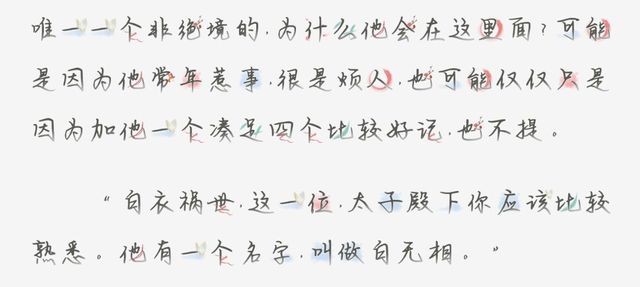 唯一一个非绝境的,为什么他会在这里面?可能
是因为他常年惹事,很是烦人,也可能仅仅只是
因为加他一个凑足四个比较好记,也不提。
“白衣祸世,这一位,太子殿下你应该比较
熟悉。他有一个名字,叫做白无相。”